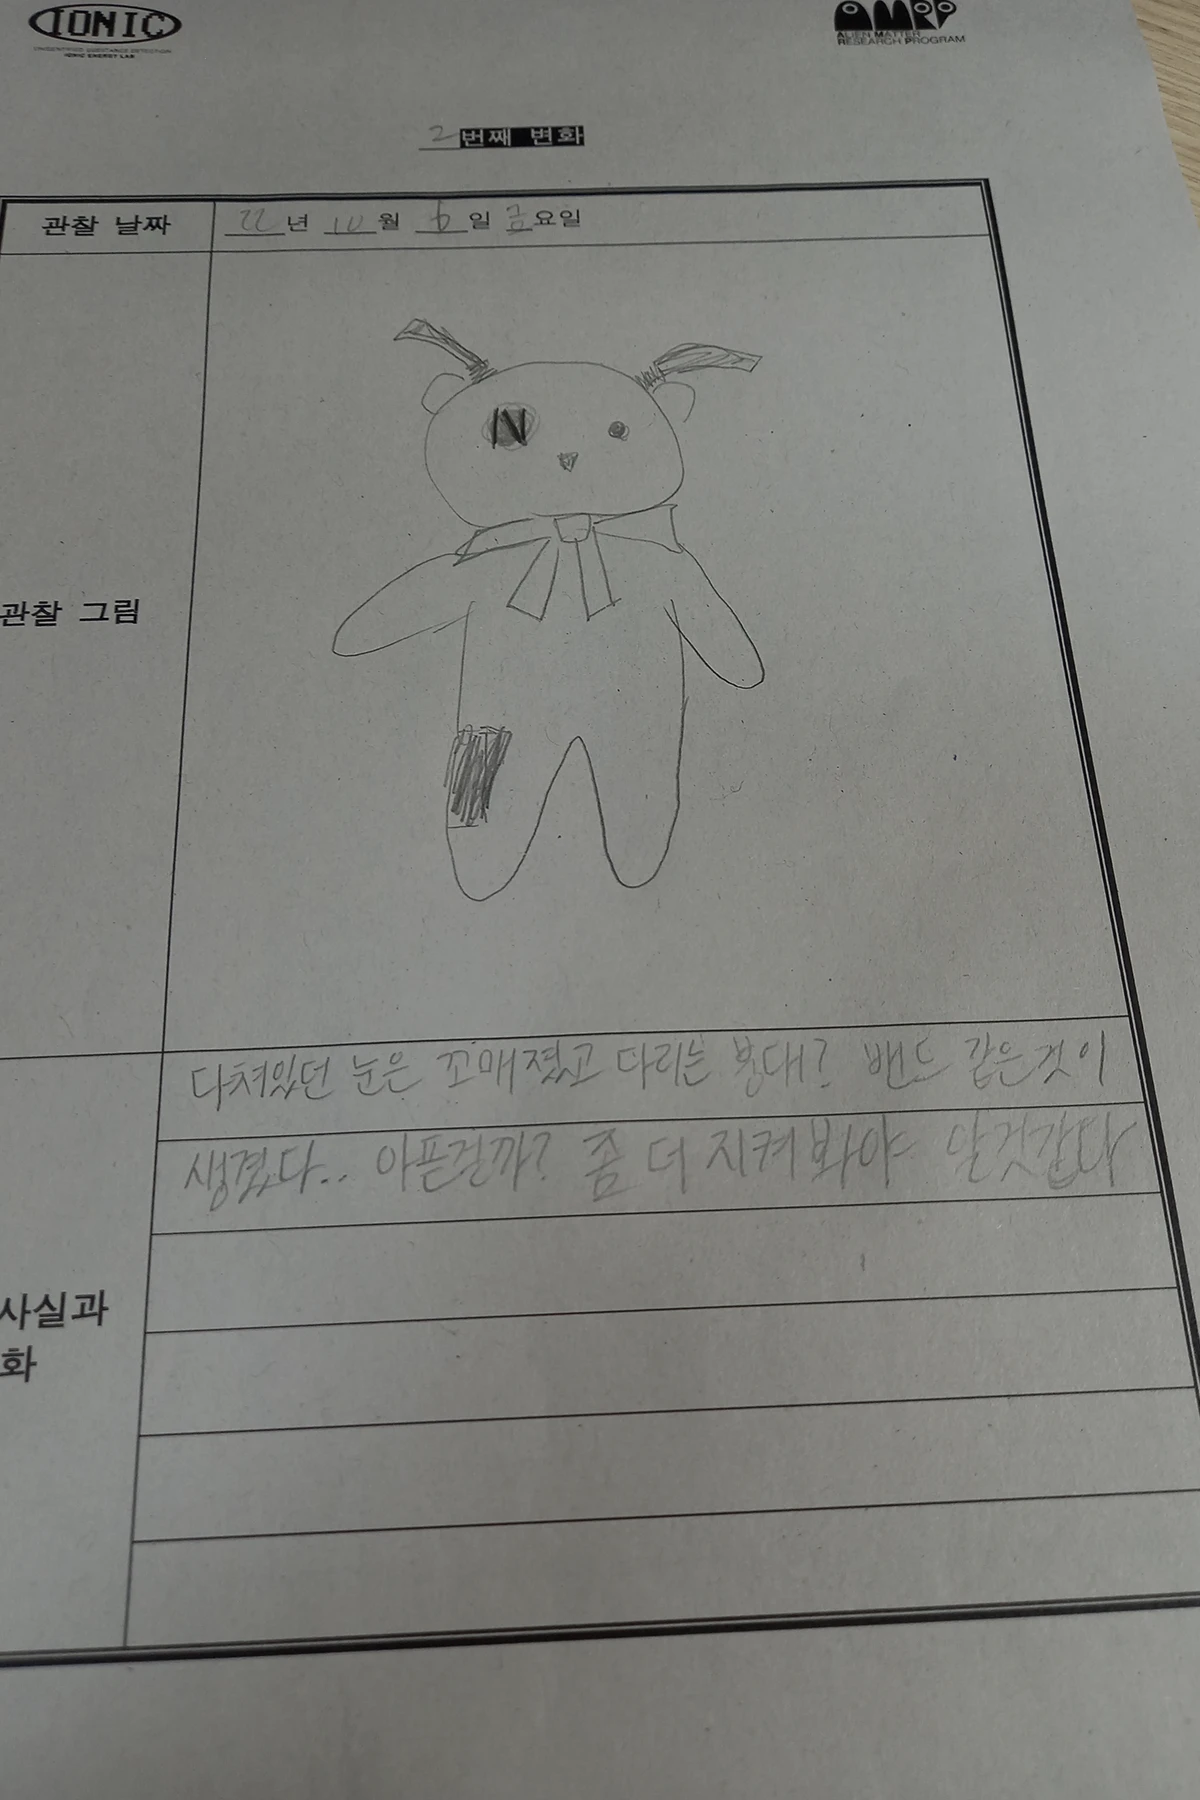 IONIC
UNIDENTIFIED SUBSTANCE DETECTION
IONIC ENERGY LAB
AMRP
ALIEN MATTER
RESEARCH PROGRAM
2번째 변화
관찰 날짜
22년 10월 일 금요일
관찰 그림
다쳐있던 눈은 꼬매졌고 다리는 붕대? 밴드 같은것이
생겼다.. 아픈걸까? 좀 더 지켜봐야 알것같다
사실과
화